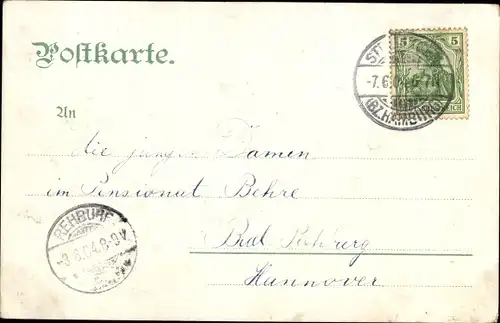 Postkarte.
5 5
ST
-7.6.04. 6-7N
(BZ.HAMBURG)
REICH
An
die jungen Damen
im Pensionat Behre
REHBURG
-8.6.04.8-9V.
Bad Rehburg
Hannover